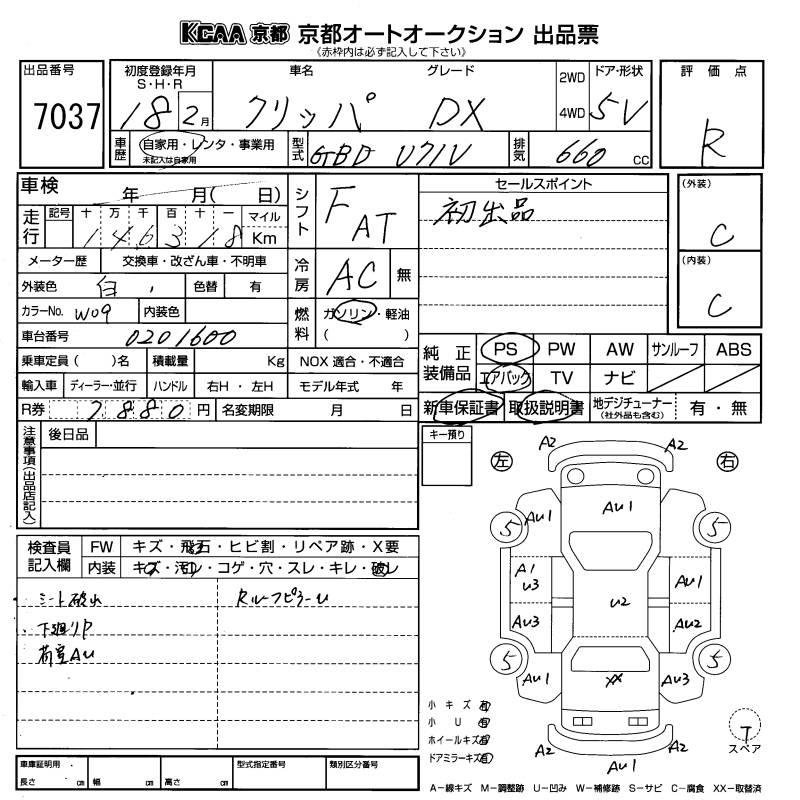 KCAA 京都 京都オートオークション 出品票
《赤枠内は必ず記入して下さい》
出品番号 初度登録年月 車名 グレード 2WD ドア・形状 評価点
S・H・R
7037 18 2月 クリッパ DX 4WD 5V R
車歴 自家用・レンタ・事業用 型式 GBD U71V 排気 660 CC
未記入は自家用
車検 年 月( 日) シフト F AT セールスポイント (外装)
走行 記号 十 万 千 百 十 一 マイル 初出品 C
1 4 6 3 1 8 Km
メーター歴 交換車・改ざん車・不明車 冷房 AC 無 (内装)
外装色 白 色替 有 C
カラーNo. W09 内装色 燃料 ガソリン・軽油
車台番号 0201600 ( )
乗車定員( )名 積載量 Kg NOX 適合・不適合 純正装備品 PS PW AW サンルーフ ABS
輸入車 ディーラー・並行 ハンドル 右H・左H モデル年式 年 エアバック TV ナビ
R券 7880円 名変期限 月 日 新車保証書 取扱説明書 地デジチューナー 有・無
(社外品も含む)
注意事項(出品店記入) 後日品 キー預り
左 右
A2 A2
Au1 Au1
5 5
A1 u3 Au1
u2
Au3 Au2
5 5
Au1 XX Au3
検査員記入欄 FW キズ・飛石・ヒビ割・リペア跡・X要
内装 キズ・汚レ・コゲ・穴・スレ・キレ・破レ
シート破れ Rルーフピラーu
下廻りP
荷室Au
小キズ 有
小U 有
ホイールキズ 有
ドアミラーキズ 有
A2 Au1 A2
T
スペア
車庫証明用 型式指定番号 類別区分番号
長さ cm 幅 cm 高さ cm
A−線キズ M−調整跡 U−凹み W−補修跡 S−サビ C−腐食 XX−取替済